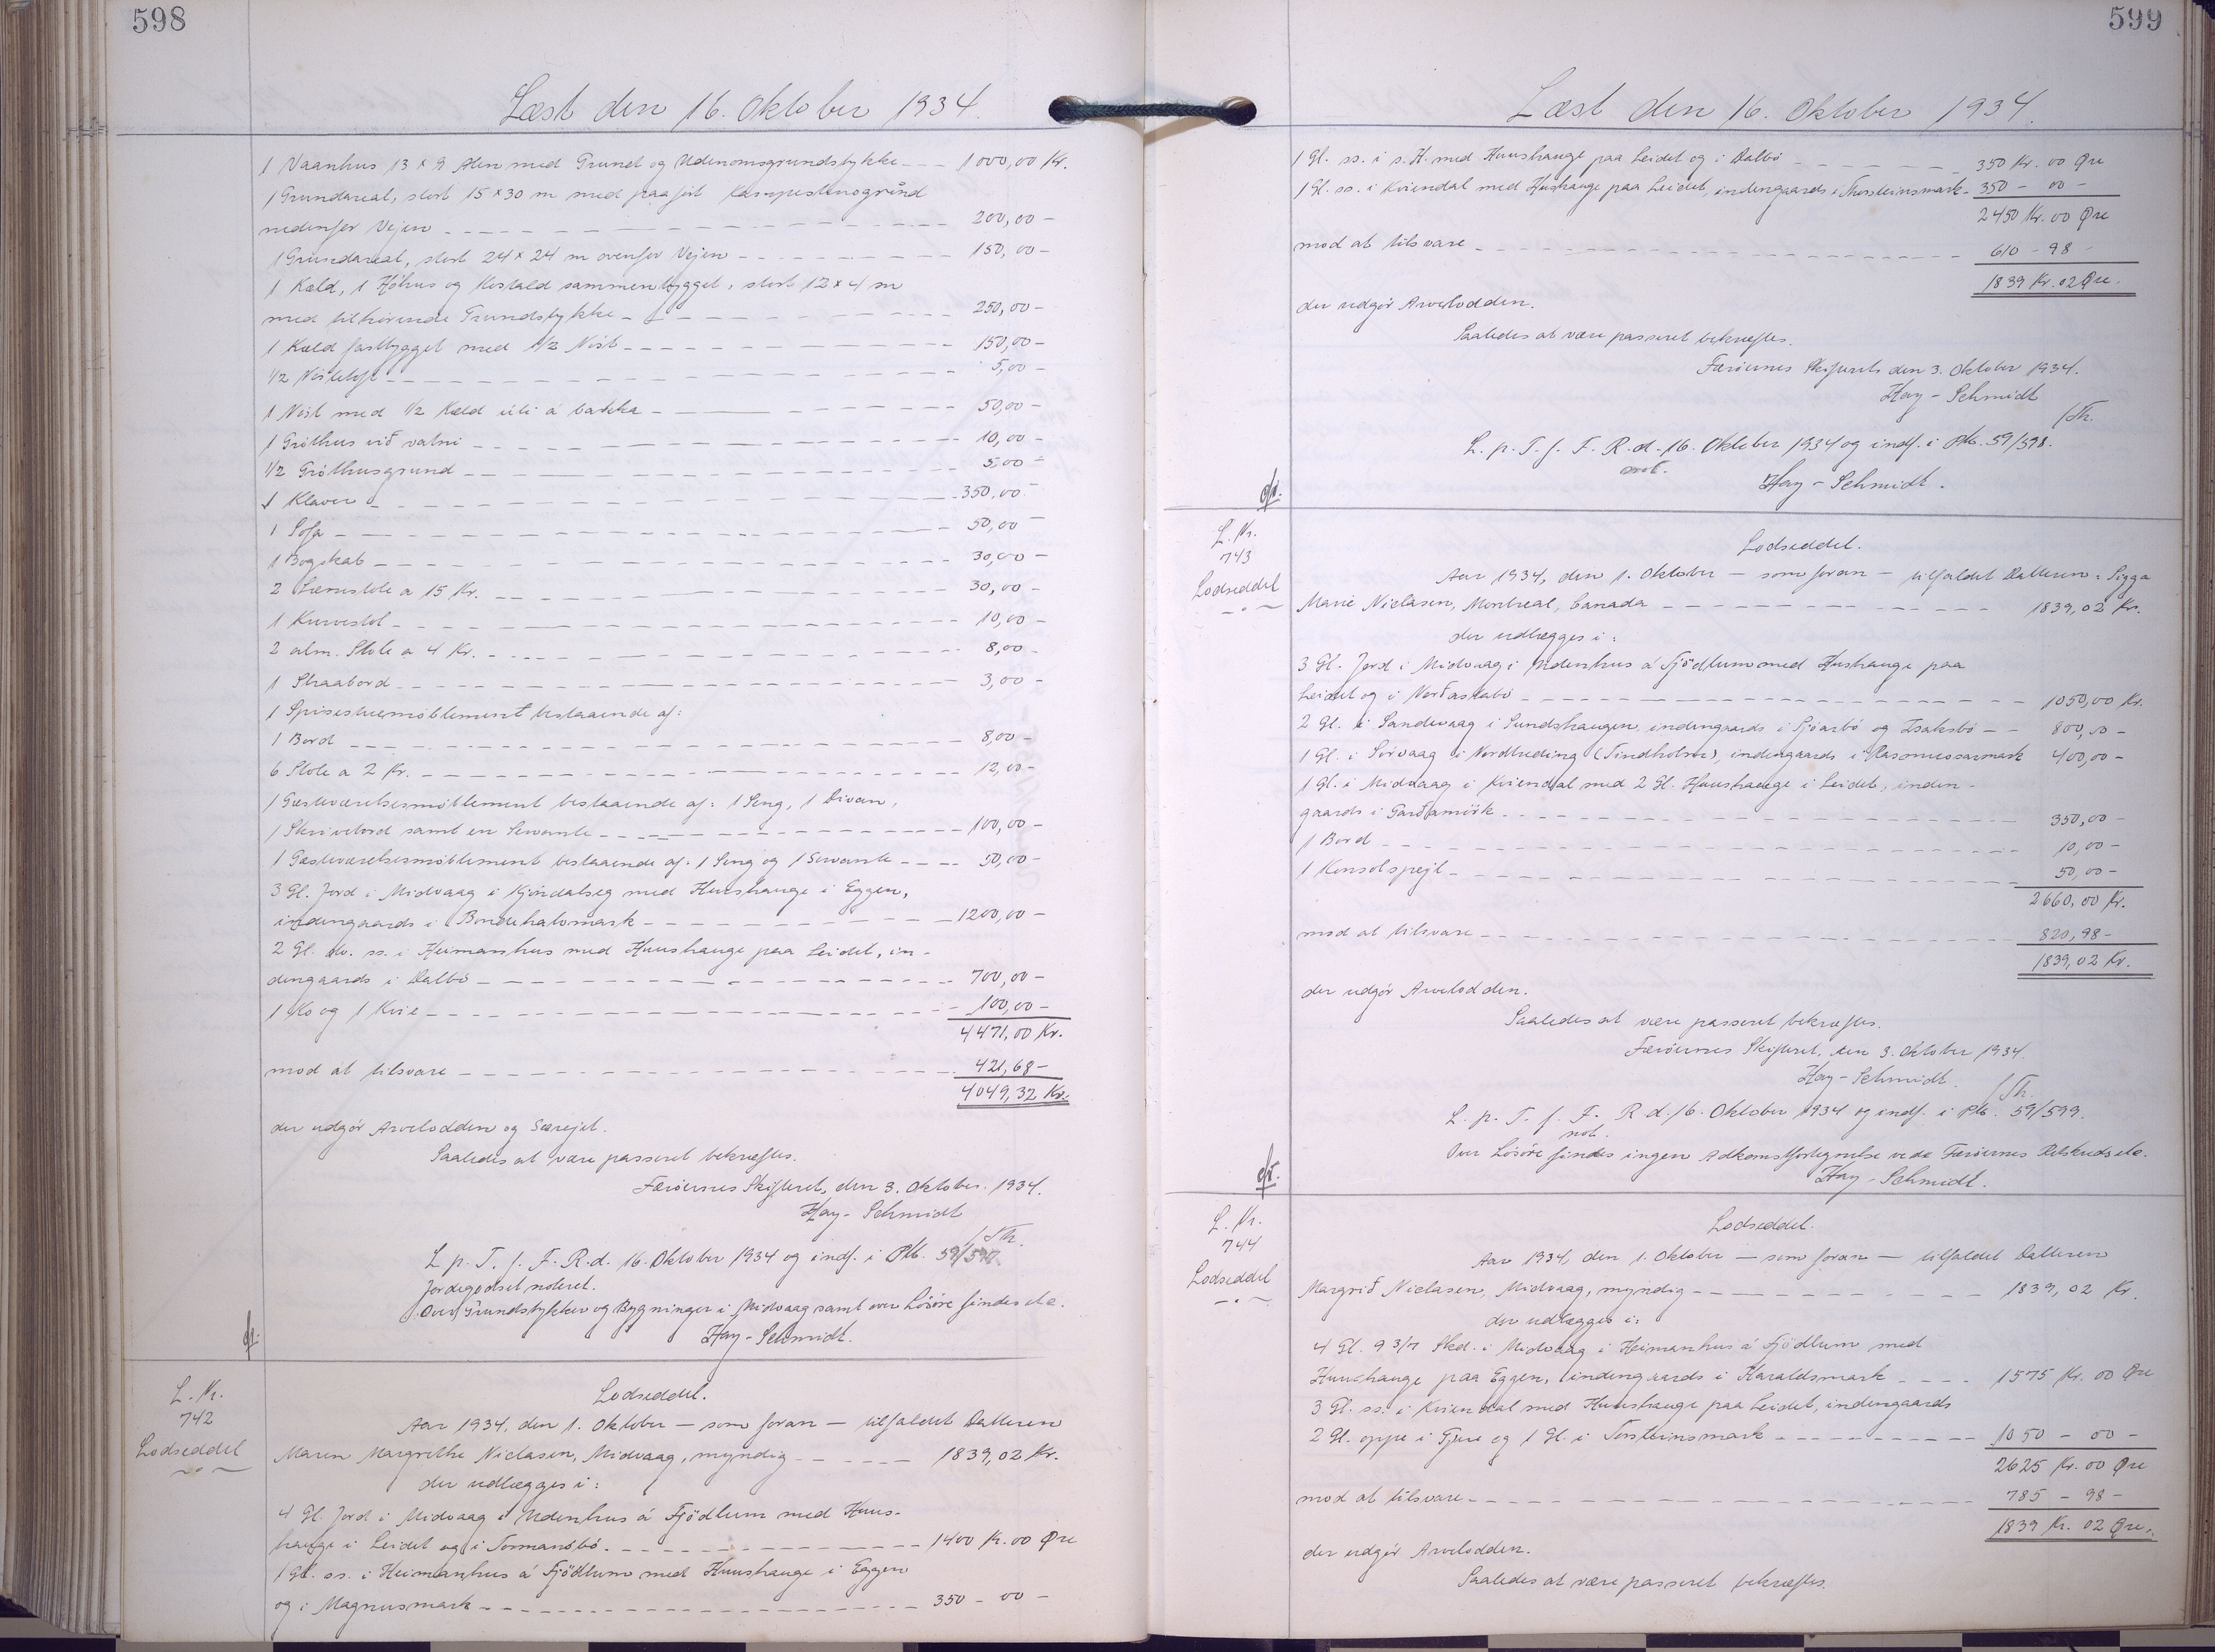 598
Læst den 16. Oktober 1934.
1 Vaanhus 13 x 9 Alen med Grund og Udenomsgrundstykke 1000,00 Kr.
1 Grundareal, stort 15 x 30 m med paaført Kampestensgrund
nedenfor Vejen 200,00 -
1 Grundareal, stort 24 x 24 m ovenfor Vejen 150,00 -
1 Kæld, 1 Høhus og Kostald sammenbygget, stort 12 x 4 m
med tilhørende Grundstykke 250,00 -
1 Kæld fastbygget med 1/2 Nøst 150,00 -
1/2 Nøsteloft 5,00 -
1 Nøst med 1/2 Kæld úti á bakka 50,00 -
1 Gróthus við vatni 10,00 -
1/2 Gróthusgrund 5,00 -
1 Klaver 350,00 -
1 Sofa 50,00 -
1 Bogskab 30,00 -
2 Lænestole a 15 Kr. 30,00 -
1 Kurvestol 10,00 -
2 alm. Stole a 4 Kr. 8,00 -
1 Straabord 3,00 -
1 Spisestuemøblement bestaaende af:
1 Bord 8,00 -
6 Stole a 2 Kr. 12,00 -
1 Gæsteværelsesmøblement bestaaende af: 1 Seng, 1 Divan,
1 Skrivebord samt en Servante 100,00 -
1 Gæsteværelsesmøblement bestaaende af: 1 Seng og 1 Servante 50,00 -
3 Gl. Jord i Midvaag i Kjøndalseg med Huushauge i Eggen,
indengaards i Bondehalsmark 1200,00 -
2 Gl. ss. i Heimanhus med Huushauge paa Leidet, in-
dengaards i Dalbø 700,00 -
1 Ko og 1 Kvie 100,00 -
4471,00 Kr.
mod at tilsvare 421,68 -
4049,32 Kr.
der udgør Arvelodden og Særejet.
Saaledes at være passeret bekræftes.
Færøernes Skifteret, den 3. Oktober 1934.
Hay-Schmidt
/Th.
L. p. T. f. F. R. d. 16. Oktober 1934 og indf. i Ptb. 59/597
Jordegodset noteret.
Over Grundstykker og Bygninger i Midvaag samt over Løsøre findes etc.
Hay-Schmidt.
L. Nr.
742
Lodseddel
Lodseddel.
Aar 1934, den 1. Oktober — som foran — tilfaldet Datteren
Maren Margrethe Niclasen, Midvaag, myndig 1839,02 Kr.
der udlægges i:
4 Gl. Jord i Midvaag i Udenhus á Fjödlum med Huus-
hauge i Leidet og i Tormansbø 1400 Kr. 00 Øre
1 Gl. ss. i Heimanhus á Fjödlum med Huushauge i Eggen
og i Magnusmark 350 - 00 -
599
Læst den 16. Oktober 1934.
1 Gl. ss. i s. H. med Huushauge paa Leidet og i Dalbø 350 Kr. 00 Øre
1 Gl. ss. i Kviendal med Hushauge paa Leidet, indengaards i Thorsteinsmark 350 - 00 -
2450 Kr. 00 Øre
mod at tilsvare 610 - 98 -
1839 Kr. 02 Øre.
der udgør Arvelodden.
Saaledes at være passeret bekræftes.
Færøernes Skifteret den 3. Oktober 1934.
Hay-Schmidt
/Th.
L. p. T. f. F. R. d. 16. Oktober 1934 og indf. i Ptb. 59/598.
not.
Hay-Schmidt.
L. Nr.
743
Lodseddel
Lodseddel.
Aar 1934, den 1. Oktober — som foran — tilfaldet Datteren: Sigga
Marie Niclasen, Montreal, Canada 1839,02 Kr.
der udlægges i:
3 Gl. Jord i Midvaag i Udenhus á Fjödlum med Hushauge paa
Leidet og i Norðastabø 1050,00 Kr.
2 Gl. i Sandevaag i Sundshaugen indengaards i Sjóarbø og Isaksbø 800,00 -
1 Gl. i Sørvaag i Nordtreding (Tindholm), indengaards i Rasmussarmark 400,00 -
1 Gl. i Midvaag i Kviendal med 2 Gl. Huushauge i Leidet, inden-
gaards i Garðamörk 350,00 -
1 Bord 10,00 -
1 Konsolspejl 50,00 -
2660,00 Kr.
mod at tilsvare 820,98 -
1839,02 Kr.
der udgør Arvelodden.
Saaledes at være passeret bekræftes.
Færøernes Skifteret, den 3. Oktober 1934.
Hay-Schmidt.
/Th.
L. p. T. f. F. R. d. 16. Oktober 1934 og indf. i Ptb. 59/599.
not.
Over Løsøre findes ingen Adkomstfortegnelse ved Færøernes Retskreds etc.
Hay-Schmidt.
L. Nr.
744
Lodseddel
Lodseddel.
Aar 1934, den 1. Oktober — som foran — tilfaldet Datteren
Margrið Niclasen, Midvaag, myndig 1839,02 Kr.
der udlægges i:
4 Gl. 9 3/7 Skd. i Midvaag i Heimanhus á Fjödlum med
Huushauge paa Eggen, indengaards i Haraldsmark 1575 Kr. 00 Øre
3 Gl. ss. i Kviendal med Huushauge paa Leidet, indengaards
2 Gl. oppe i Gjere og 1 Gl. i Torsteinsmark 1050 - 00 -
2625 Kr. 00 Øre
mod at tilsvare 785 - 98 -
1839 Kr. 02 Øre.
der udgør Arvelodden.
Saaledes at være passeret bekræftes.